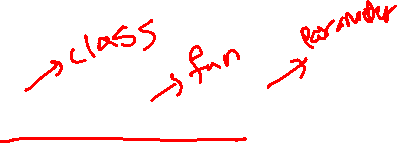 class
fun
parameter